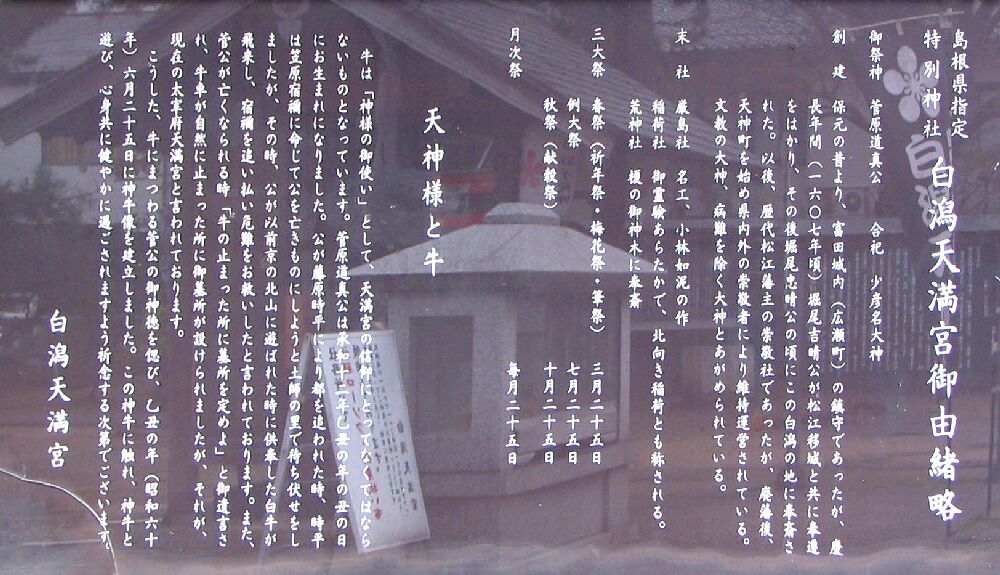 島根県指定
特別神社
白潟天満宮御由緒略
御祭神　菅原道真公　合祀　少彦名大神
創建　保元の昔より、富田城内（広瀬町）の鎮守であったが、慶
長年間（一六〇七年頃）堀尾吉晴公が、松江移城と共に奉遷
をはかり、その後堀尾忠晴公の頃にこの白潟の地に奉斎さ
れた。以後、歴代松江藩主の崇敬社であったが、廃藩後、
天神町を始め県内外の崇敬者により維持運営されている。
文教の大神、病難を除く大神とあがめられている。
末社　厳島社　名工、小林如泥の作
稲荷社　御霊験あらたかで、北向き稲荷とも称される。
荒神社　榎の御神木に奉斎
三大祭　春祭（祈年祭・梅花祭・筆祭）三月二十五日
例大祭　七月二十五日
秋祭（献穀祭）　十月二十五日
月次祭　毎月二十五日
天神様と牛
牛は「神様の御使い」として、天満宮の信仰にとってなくてはなら
ないものとなっています。菅原道真公は承和十二年乙丑の年の丑の日
にお生まれになりました。公が藤原時平により都を追われた時、時平
は笠原宿禰に命じて公を亡きものにしようと土師の里で待ち伏せをし
ましたが、その時、公が以前京の北山に遊ばれた時に供奉した白牛が
飛来し、宿禰を追い払い危難をお救いしたと言われております。また、
菅公が亡くなられる時「牛の止まった所に墓所を定めよ」と御遺言さ
れ、牛車が自然に止まった所に御墓所が設けられましたが、それが、
現在の太宰府天満宮と言われております。
こうした、牛にまつわる菅公の御神徳を偲び、乙丑の年（昭和六十
年）六月二十五日に神牛像を建立しました。この神牛に触れ、神牛と
遊び、心身共に健やかに過ごされますよう祈念する次第でございます。
白潟天満宮